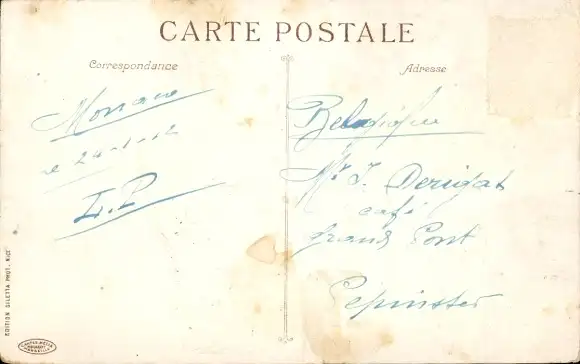 CARTE POSTALE
Correspondance
Adresse
Monaco
le 24-1-12
L.P
Belgique
Mr J. Derigat
café
grand Pont
Pepinster
EDITION GILETTA PHOT. NICE